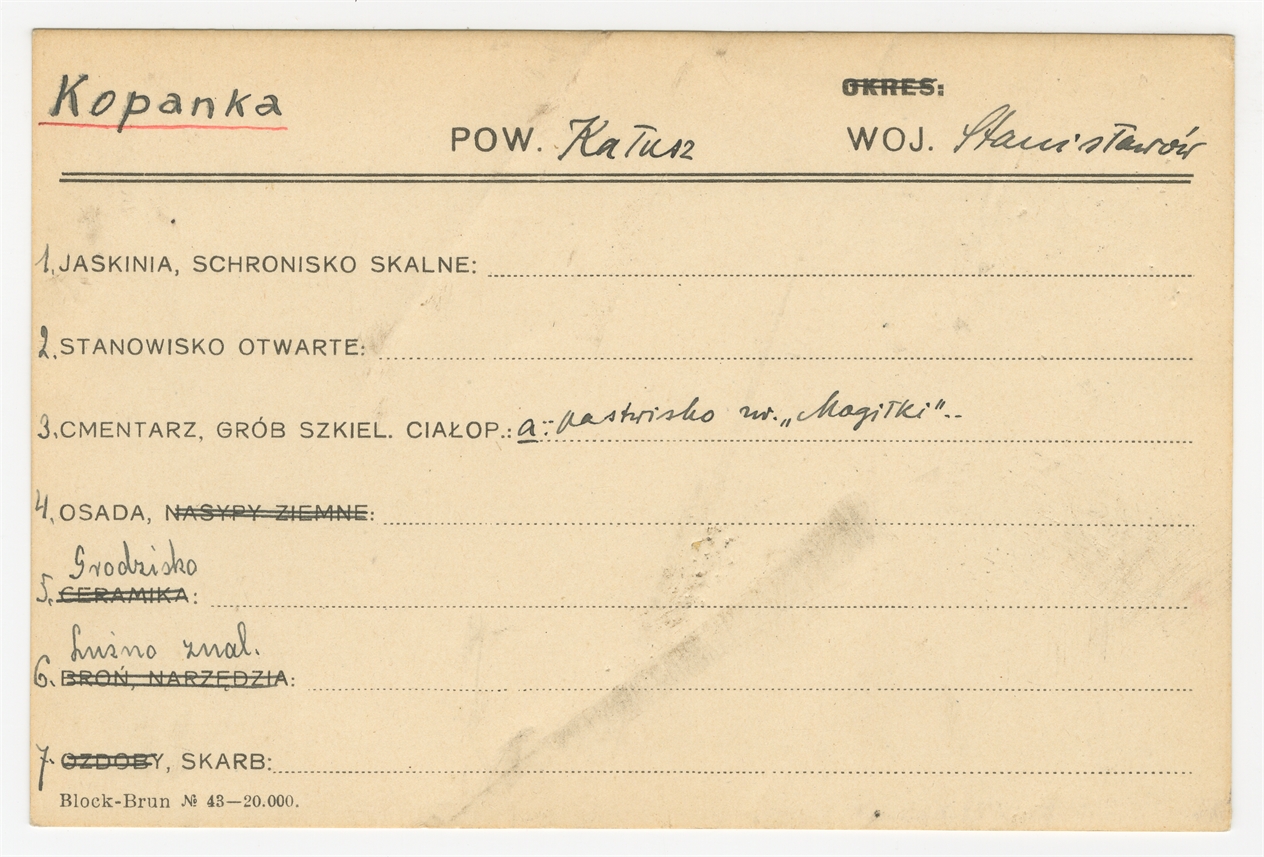 Kopanka
OKRES:
POW. Kałusz WOJ. Stanisławów
1. JASKINIA, SCHRONISKO SKALNE:
2. STANOWISKO OTWARTE:
3. CMENTARZ, GRÓB SZKIEL. CIAŁOP.: a: pastwisko zw. „Mogiłki"..
4. OSADA, NASYPY ZIEMNE:
Grodzisko
5. CERAMIKA:
Luźno znal.
6. BROŃ, NARZĘDZIA:
7. OZDOBY, SKARB:
Block-Brun № 43—20.000.